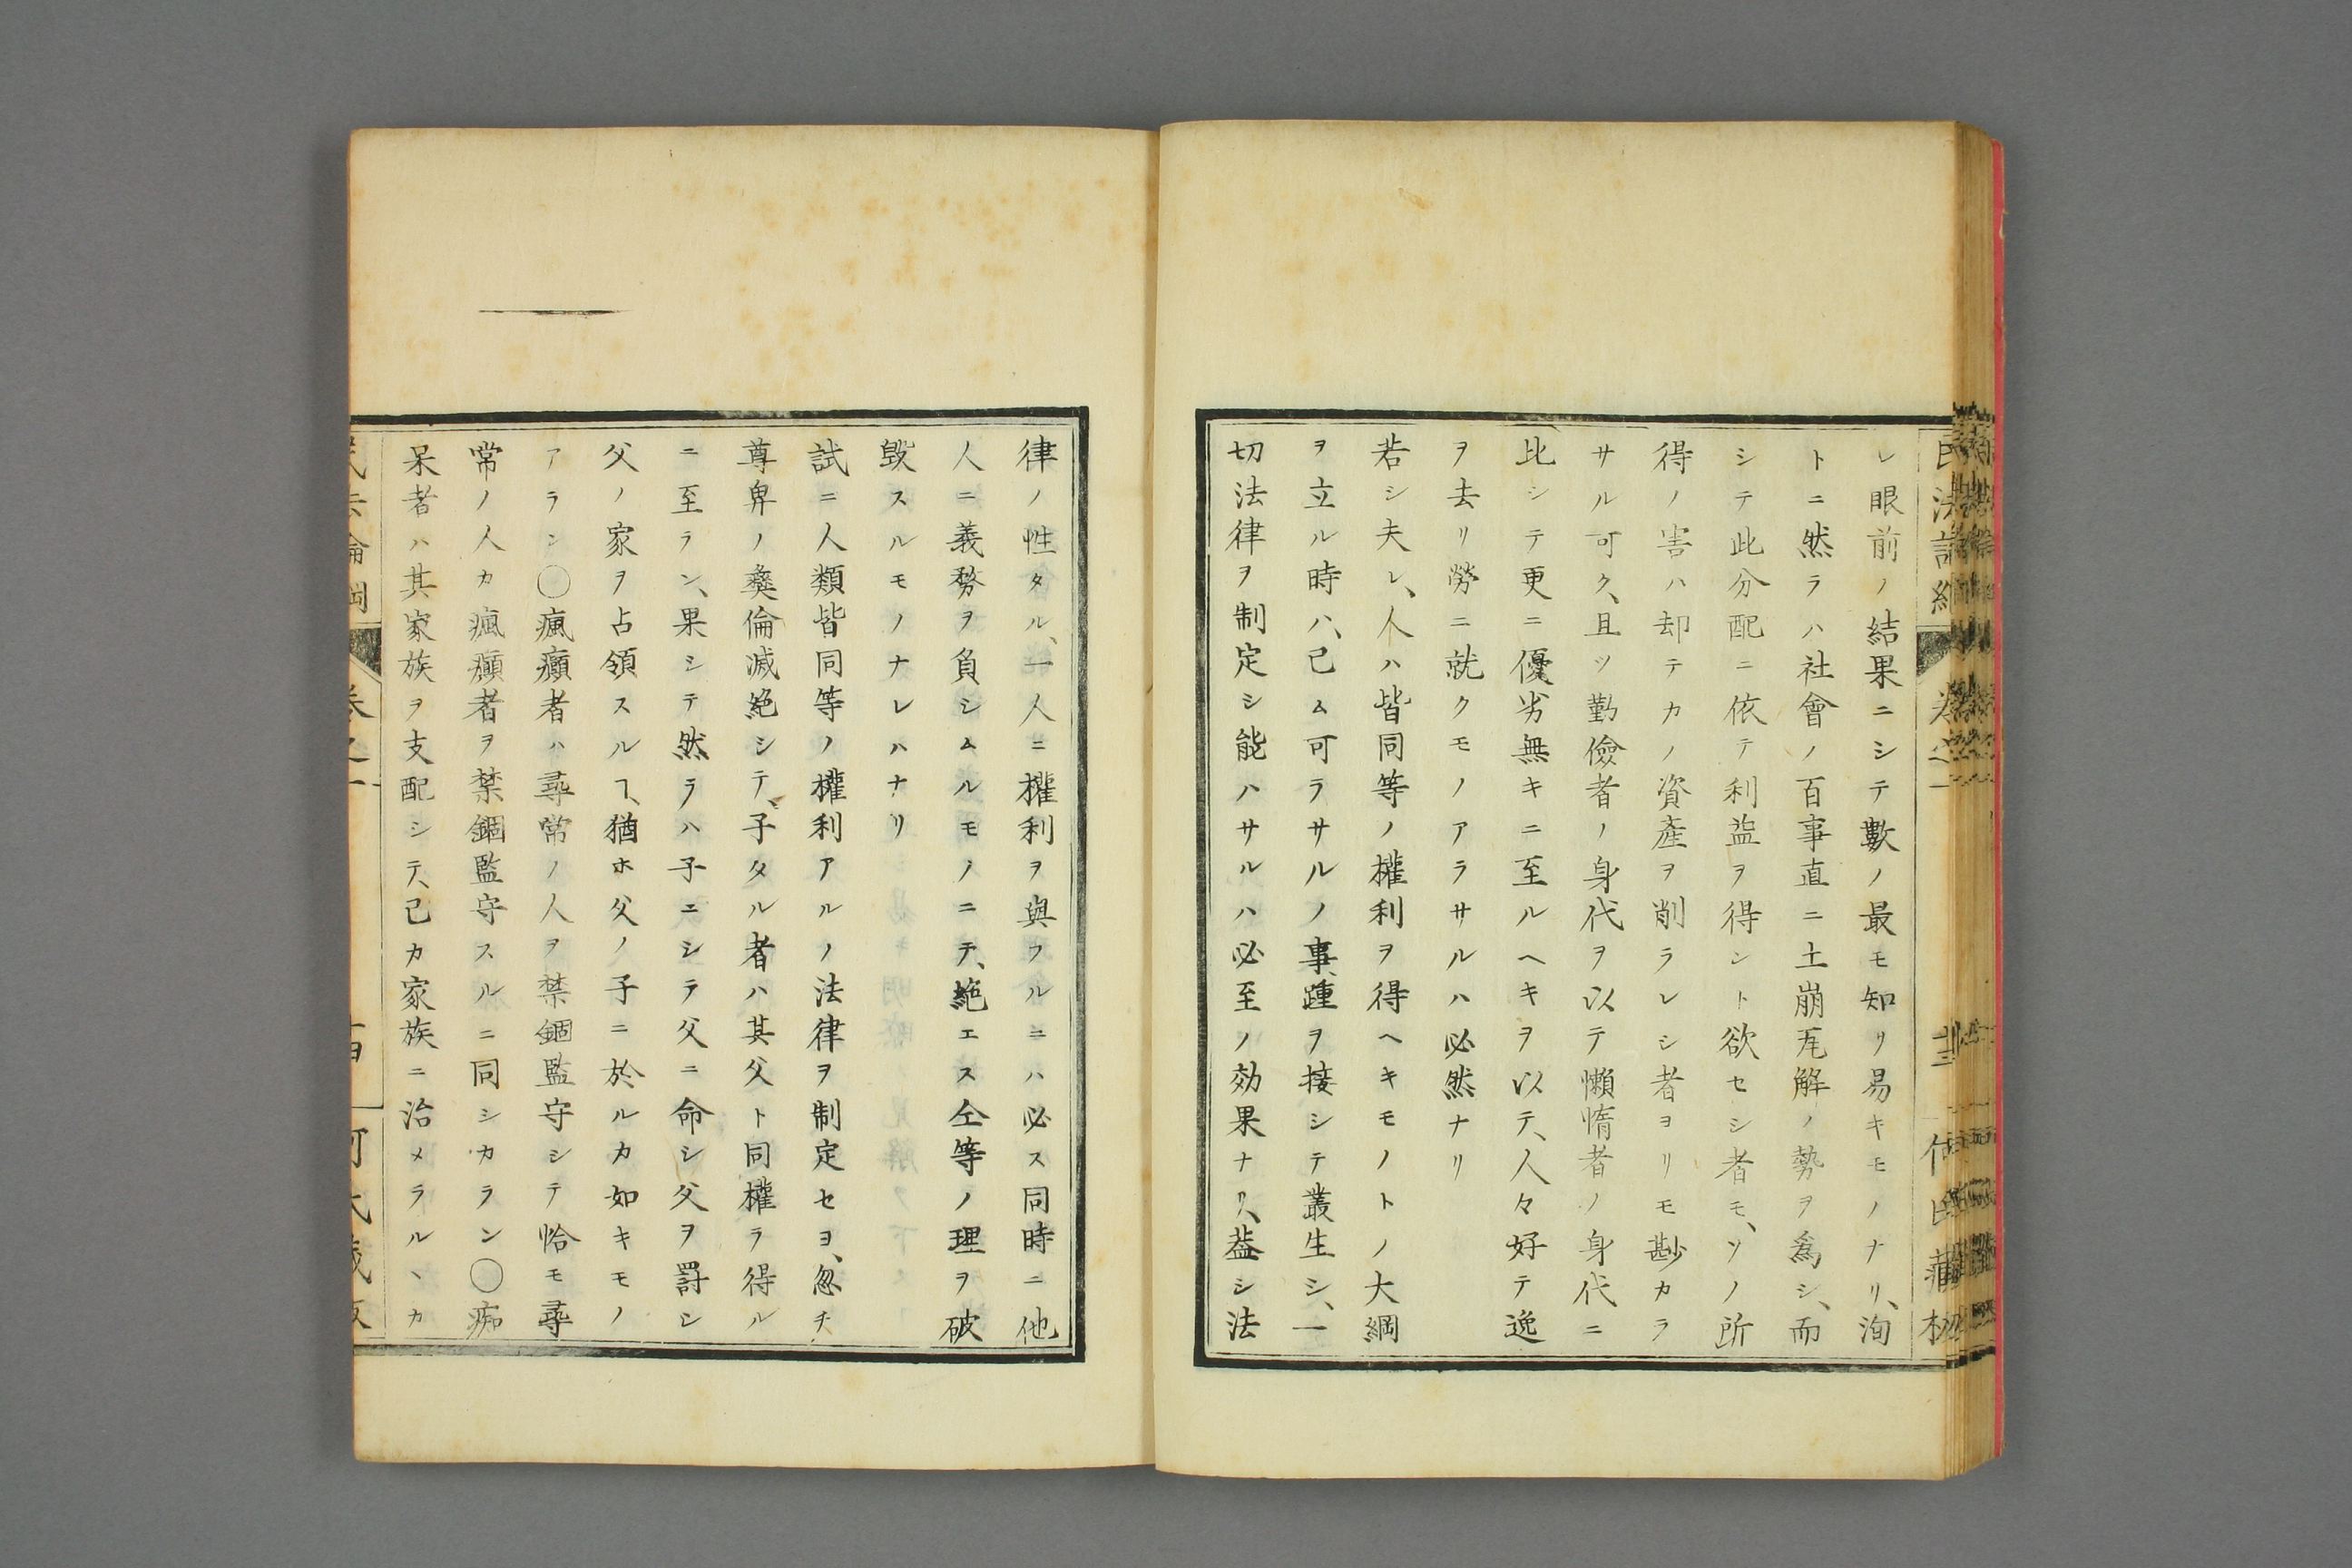 レ眼前ノ結果ニシテ數ノ最モ知リ易キモノナリ、洵
トニ然ラハ社會ノ百事直ニ土崩瓦解ノ勢ヲ爲シ、而
シテ此分配ニ依テ利益ヲ得ント欲セシ者モ、ソノ所
得ノ害ハ却テカノ資產ヲ削ラレシ者ヨリモ尠カラ
サル可ク、且ツ勤儉者ノ身代ヲ以テ懶惰者ノ身代ニ
比シテ更ニ優劣無キニ至ルヘキヲ以テ、人々好テ逸
ヲ去リ勞ニ就クモノアラサルハ必然ナリ
若シ夫レ、人ハ皆同等ノ權利ヲ得ヘキモノトノ大綱
ヲ立ル時ハ、已ム可ラサルノ事、踵ヲ接シテ叢生シ、一
切法律ヲ制定シ能ハサルハ必至ノ効果ナリ、葢シ法
律ノ性タル、一人ニ權利ヲ與フルニハ必ス同時ニ他
人ニ義務ヲ負シムルモノニテ、絶エス仝等ノ理ヲ破
毀スルモノナレハナリ
試ニ人類皆同等ノ權利アルノ法律ヲ制定セヨ、忽チ
尊卑ノ彜倫滅絶シテ、子タル者ハ其父ト同權ヲ得ル
ニ至ラン、果シテ然ラハ子ニシテ父ニ命シ父ヲ罸シ
父ノ家ヲ占領スルヿ、猶ホ父ノ子ニ於ルカ如キモノ
アラン〇瘋癲者ハ尋常ノ人ヲ禁錮監守シテ恰モ尋
常ノ人カ瘋癲者ヲ禁錮監守スルニ同シカラン〇痴
呆者ハ其家族ヲ支配シテ、己カ家族ニ治メラルヽカ